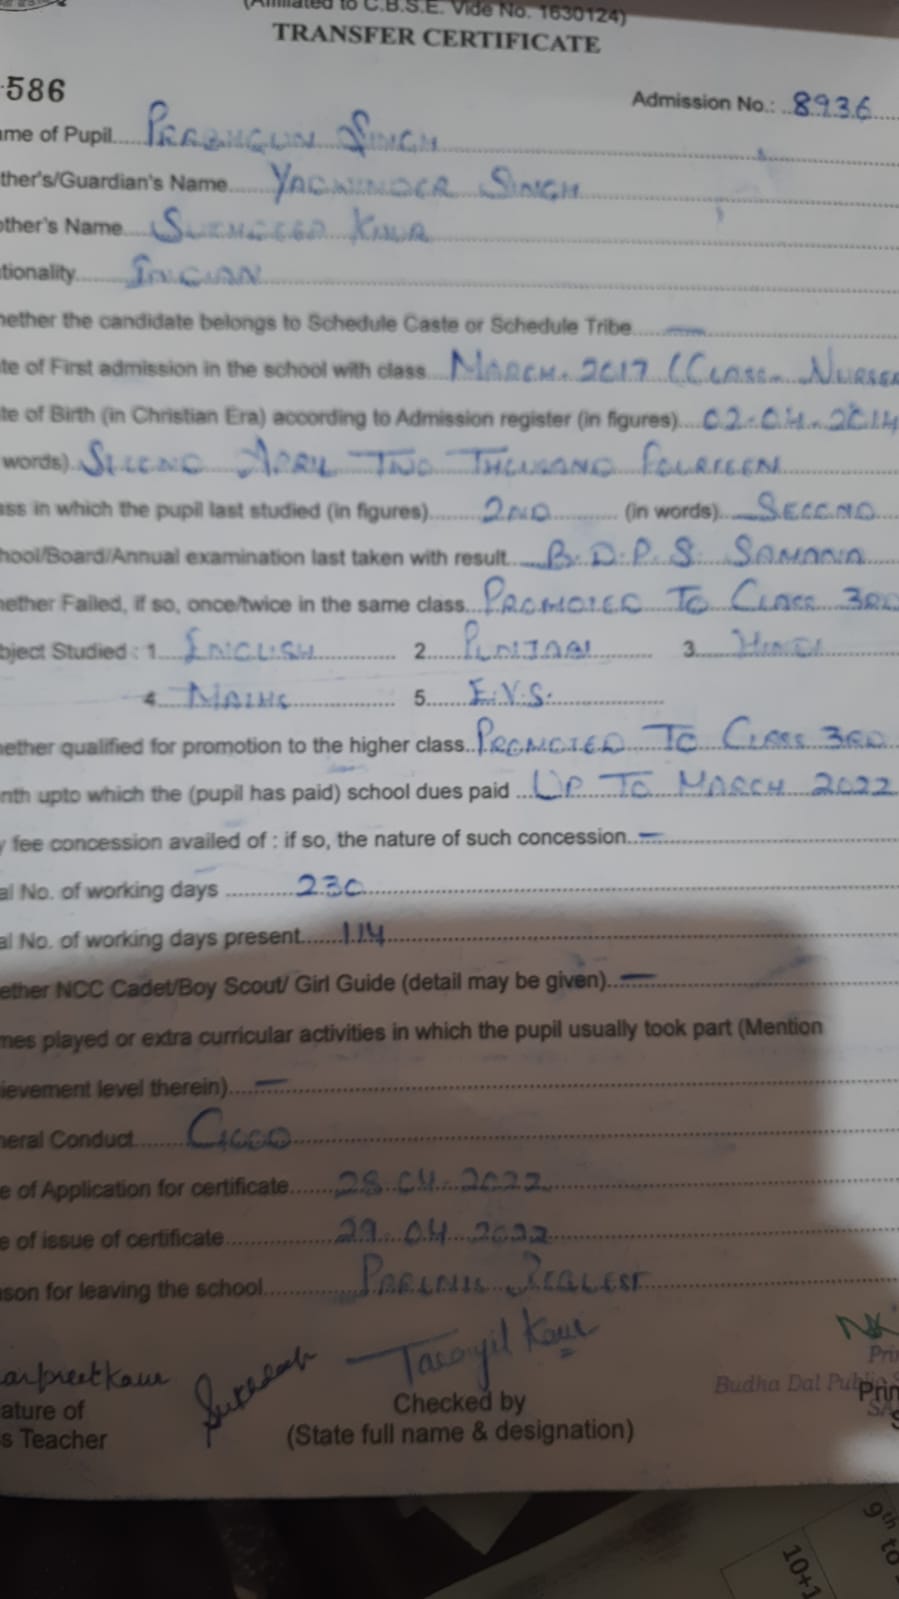 (Affiliated to C.B.S.E. Vide No. 1630124)
TRANSFER CERTIFICATE
586
Admission No.: 8936
me of Pupil PRABHGUN SINGH
ther's/Guardian's Name YADWINDER SINGH
other's Name KAUR
tionality INDIAN
hether the candidate belongs to Schedule Caste or Schedule Tribe —
te of First admission in the school with class MARCH. 2017 (CLASS- NURSER
te of Birth (in Christian Era) according to Admission register (in figures) 02-04-2014
words) SECOND APRIL TWO THOUSAND FOURTEEN
ass in which the pupil last studied (in figures) 2ND (in words) SECOND
hool/Board/Annual examination last taken with result B.D.P.S. SAMANA
hether Failed, if so, once/twice in the same class PROMOTED TO CLASS 3RD
bject Studied : 1 ENGLISH 2 PUNJABI 3 HINDI
4 MATHS 5 E.V.S.
hether qualified for promotion to the higher class PROMOTED TO CLASS 3RD
nth upto which the (pupil has paid) school dues paid UP TO MARCH 2022
y fee concession availed of : if so, the nature of such concession —
al No. of working days 230
al No. of working days present 114
ether NCC Cadet/Boy Scout/ Girl Guide (detail may be given) —
mes played or extra curricular activities in which the pupil usually took part (Mention
ievement level therein) —
neral Conduct GOOD
e of Application for certificate 28.04.2022
e of issue of certificate 29.04.2022
ason for leaving the school PARENTS REQUEST
arpreet kaur Kaur
NK
Pri
Budha Dal Publi
Prin
ature of Checked by
SA
s Teacher (State full name & designation)
S
9th to
10+1